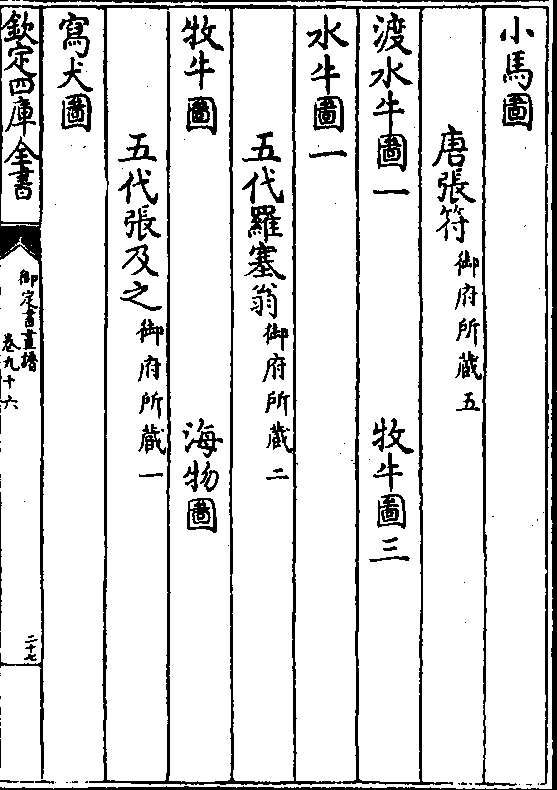 小馬圖
唐張符御府所藏五
渡水牛圖一 牧牛圖三
水牛圖一
五代羅塞翁御府所藏二
牧牛圖 海物圖
五代張及之御府所藏一
寫犬圖
欽定四庫全書 御定書畫譜 卷九十六 二十七